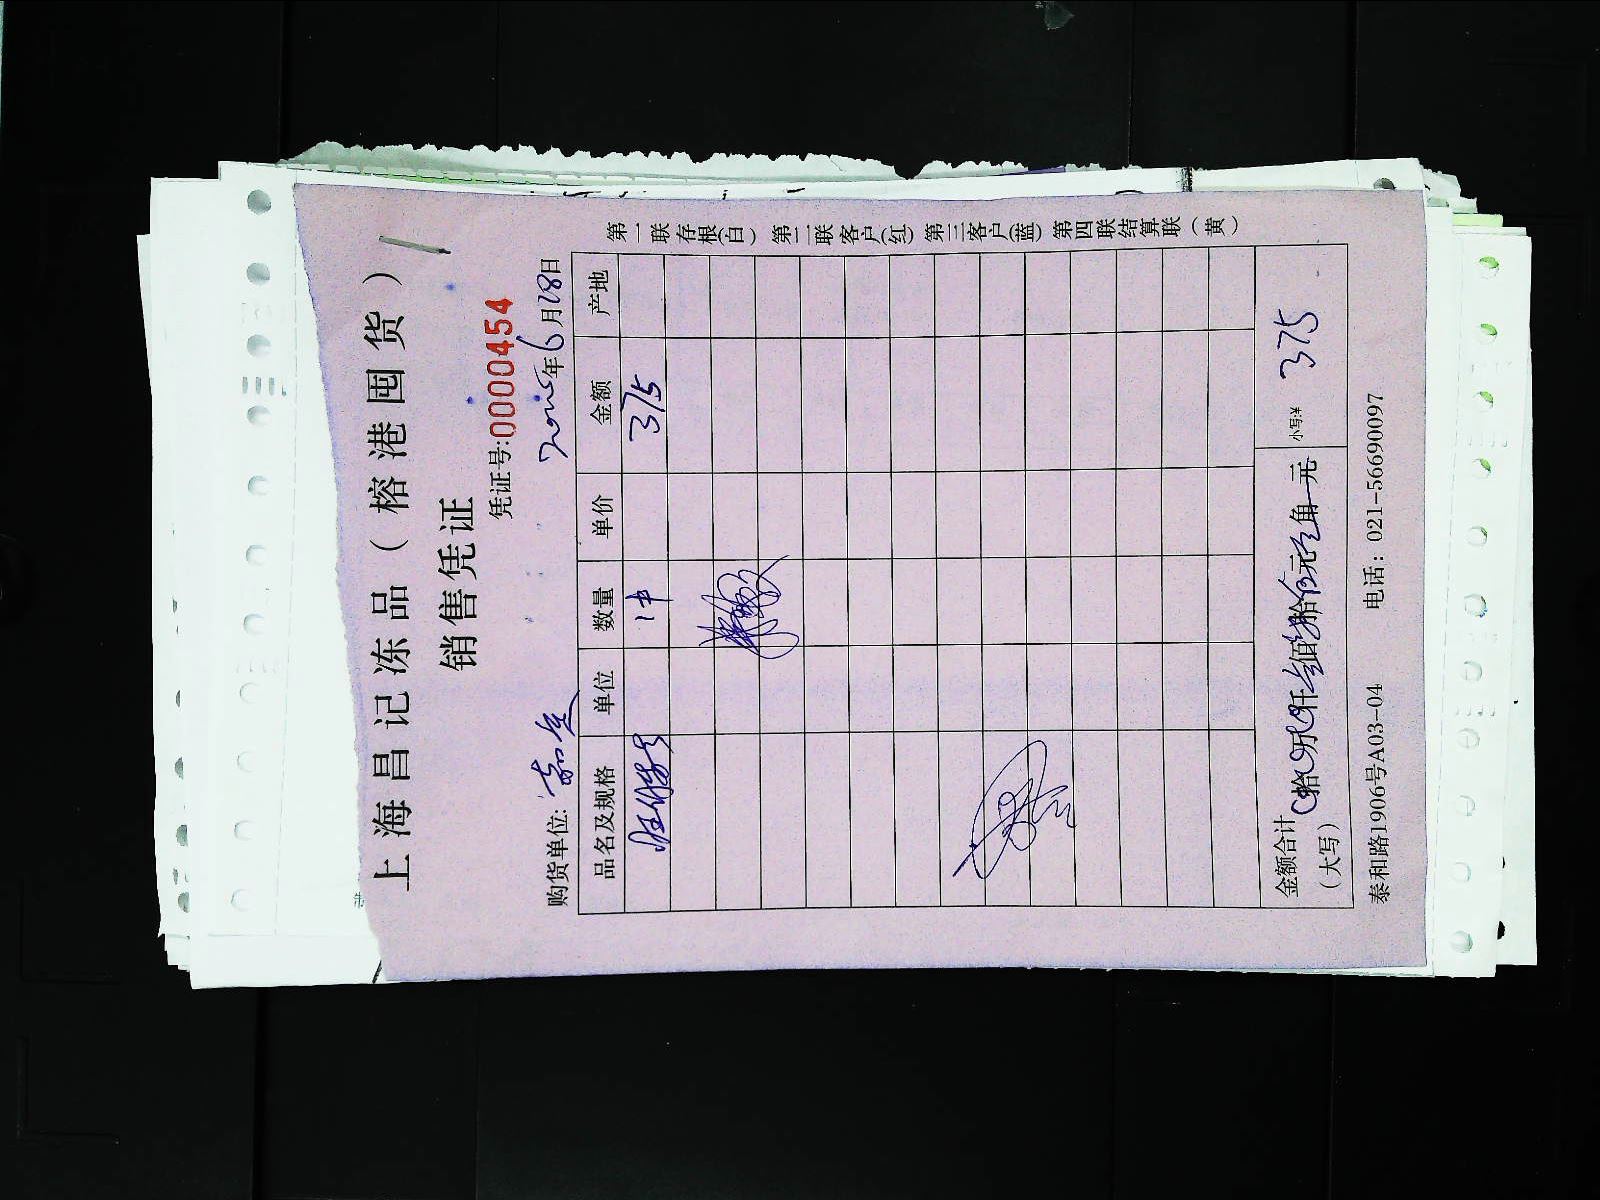 上海昌记冻品（榕港囤货）
销售凭证
凭证号:0000454
购货单位: 2015年6月18日
品名及规格 单位 数量 单价 金额 产地
1件 375
金额合计（大写） 拾 万 仟叁佰柒拾伍元 角 元 小写:¥ 375
泰和路1906号A03-04 电话：021-56690097
第一联存根(白) 第二联客户(红) 第三客户(蓝) 第四联结算联（黄）